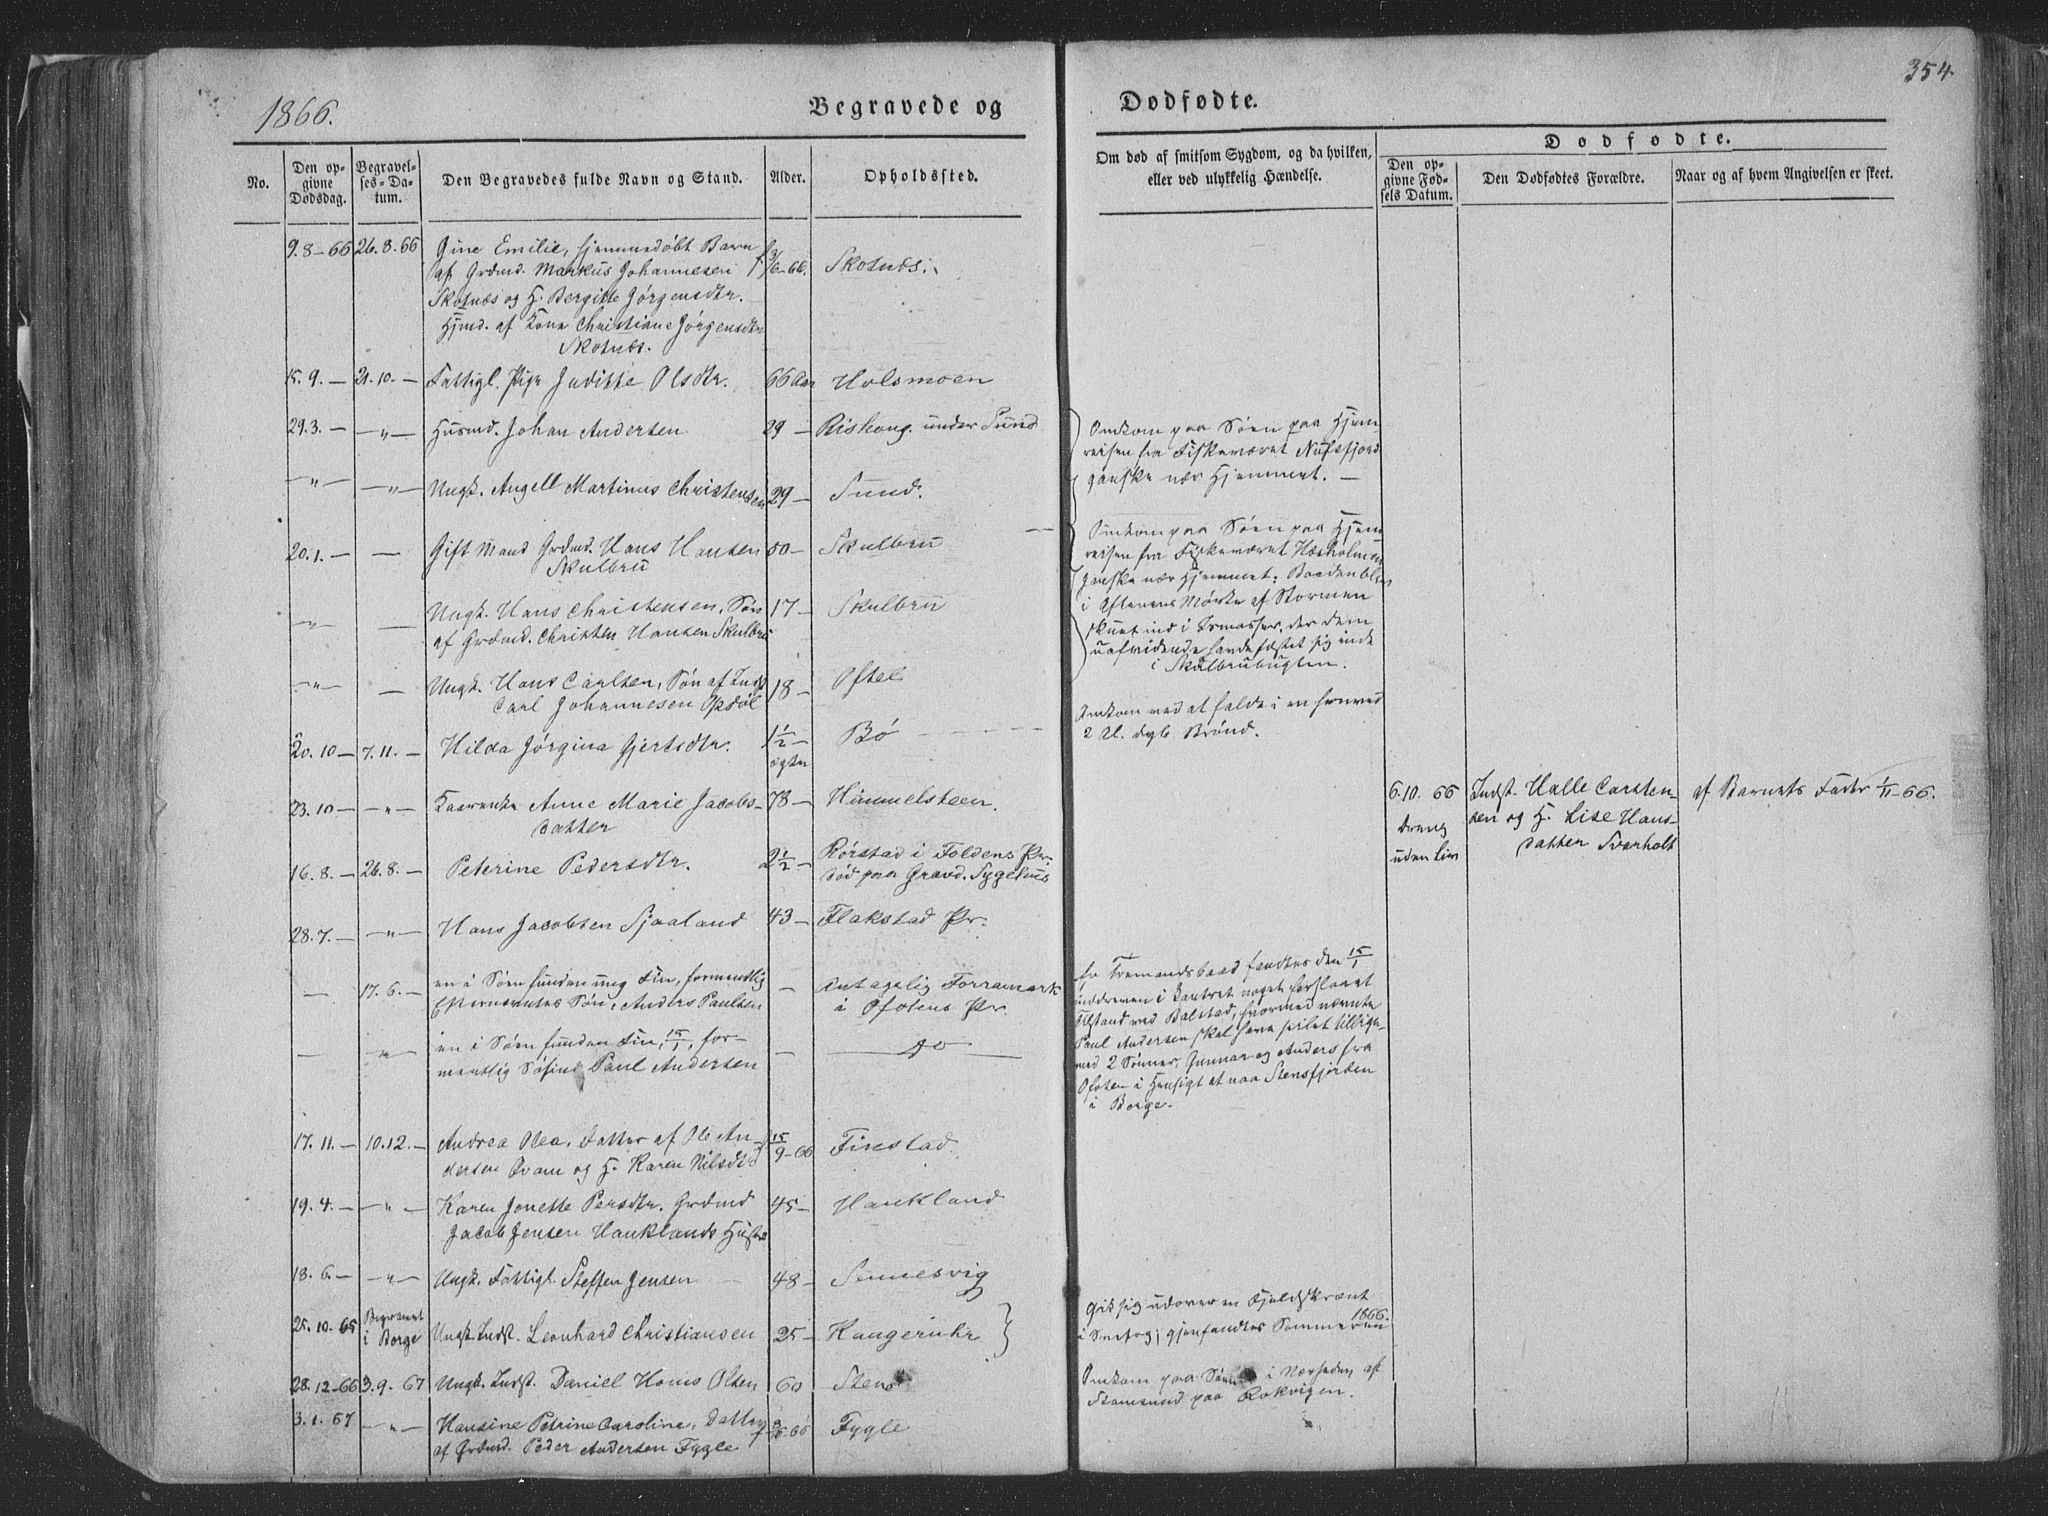 354
1866.
Begravede og
Dødfødte.
No.
Den opgivne Dødsdag.
Begravelses-Datum.
Den Begravedes fulde Navn og Stand.
Alder.
Opholdssted.
Om død af smitsom Sygdom, og da hvilken, eller ved ulykkelig Hændelse.
Dødfødte.
Den opgivne Fødsels Datum.
Den Dødfødtes Forældre.
Naar og af hvem Angivelsen er skeet.
9.8-66 26.8.66 Gine Emilie, hjemmedøbt Barn f. 3/6-66. Skotnæs.
af Grdmd. Markus Johannesen
Skotnæs og H. Bergitte Jørgensdtr.
Hjmd. af Kone Christiane Jørgensdtr
Skotnæs.
15.9.— 21.10.— Fattigl. Pige Juditte Olsdtr. 66 Aar Holsmoen
29.3.— —"— Husmd. Johan Andersen 29— Rishoug. under Sund
Omkom paa Søen paa Hjem-
reisen fra Fiskeværet Nufsfjord
ganske nær Hjemmet. —
—"— —"— Ungk. Angell Martinus Christensen 29— Sund.
20.1.— — Gift Mand Grdmd. Hans Hansen 50— Skulbru
Skulbru
Omkom paa Søen paa Hjem-
reisen fra Fiskeværet Henholmen
ganske nær Hjemmet; Baaden blev
i Aftenens Mørke af Stormen
skuet ind i Ismasser, der dem
uafvidende havde fæstet sig inde
i Skulbrubugten.
—"— — Ungk. Hans Christensen, Søn 17— Skulbru
af Grdmd. Christen Hansen Skulbru
—"— — Ungk. Hans Carlsen, Søn af Inds 18— Ofstel
Carl Johannesen Opdøl
20.10— 7.11.— Hilda Jørgina Gjertsdtr. 1 1/2— Bø
ægte
Omkom ved at falde i en henved
2 Al. dyb Brønd.
23.10— —"— Kaarenke Anne Marie Jacobs- 78— Himmelsteen.
datter
6.10.66 Indst. Halle Carsten- af Barnets Fader 1/11-66.
Dreng sen og H. Lise Hans-
uden Liv datter Svarholt
16.8.— 26.8.— Peterine Pedersdtr. 2 1/2— Rørstad i Foldens Pr.
død paa Gravd. Sygehus
28.7.— —"— Hans Jacobsen Sjaaland 43— Flakstad Pr.
— 17.6.— en i Søen funden ung Fin, formentlig — Antagelig Forramark
Efternævntes Søn, Anders Paulsen i Ofotens Pr.
Fr Tremandsbaad fandtes den 15/1
inddreven i kantret noget forslaaet
Tilstand ved Balstad, hvormed nævnte
Paul Andersen skal have seilet tillige
med 2 Sønner, Gunnar og Anders fra
Ofoten i Hensigt at naa Steinsfjorden
i Borge.
— " en i Søen funden Fin, 15/1, for- — do
mentlig Søfind Paul Andersen
17.11.— 10.12.— Andrea Olea, Datter af Ole An- 15/9-66 Finstad
dersen Qvam og H. Karen Nilsdtr
19.4.— —"— Karen Jonette Persdtr. Grdmd 45— Haukland
Jacob Jensen Hauklands Hustru
18.6.— —"— Ungk. Fattigl. Steffen Jensen 48— Sennesvig
25.10.65 Begravet i Borge Ungk. Indst. Leonhard Christiansen 25— Haugeruhr
Gik sig udover en Fjeldskrænt
i Snefog; gjenfandtes Sommeren 1866.
28.12-66 3.9.67 Ungk. Indst. Daniel Hans Olsen 60 Stene
Omkom paa Søen i Nærheden af
Stamsund paa Rokvigen.
3.1.67 —"— Hansine Petrine Caroline, Datter f. 8/-66 Fygle
af Grdmd. Peder Andersen Fygle